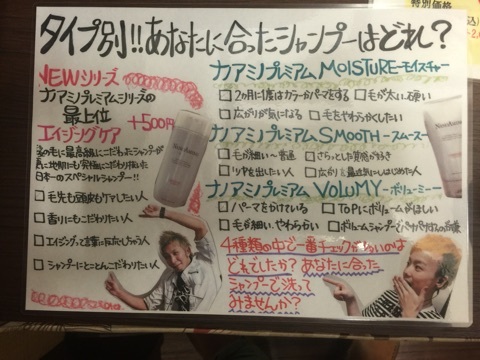 タイプ別!!あなたに合ったシャンプーはどれ?
NEWシリーズ
ナアミノプレミアムシリーズの
最上位
エイジングケア
+500円
日本一のスペシャルシャンプー!!
□毛先も頭皮もケアしたい人
□香りにもこだわりたい人
□エイジングって言葉に反応しちゃう人
□シャンプーにとことんこだわりたい人
ナアミノプレミアム MOISTURE-モイスチャー
□2カ月に1度はカラーかパーマをする □毛が太い・硬い
□広がりが気になる □毛をやわらかくしたい
ナアミノプレミアム SMOOTH-スムースー
□毛が細い〜普通 □さらっとした質感が好き
□ツヤを出したい人 □広がりを最近気にしはじめた人
ナアミノプレミアム VOLUMY-ボリューミー
□パーマをかけている □TOPにボリュームがほしい
□毛が細い、やわらかい
4種類の中で一番チェックが多いのは
どれでしたか?あなたに合った
シャンプーで洗って
みませんか?
特別価格